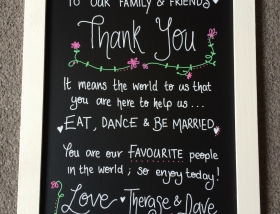 TO OUR FAMILY & FRIENDS
Thank You
It means the world to us that
you are here to help us...
EAT, DANCE & BE MARRIED
You are our FAVOURITE people
in the world; so enjoy today!
Love Therase & Dave